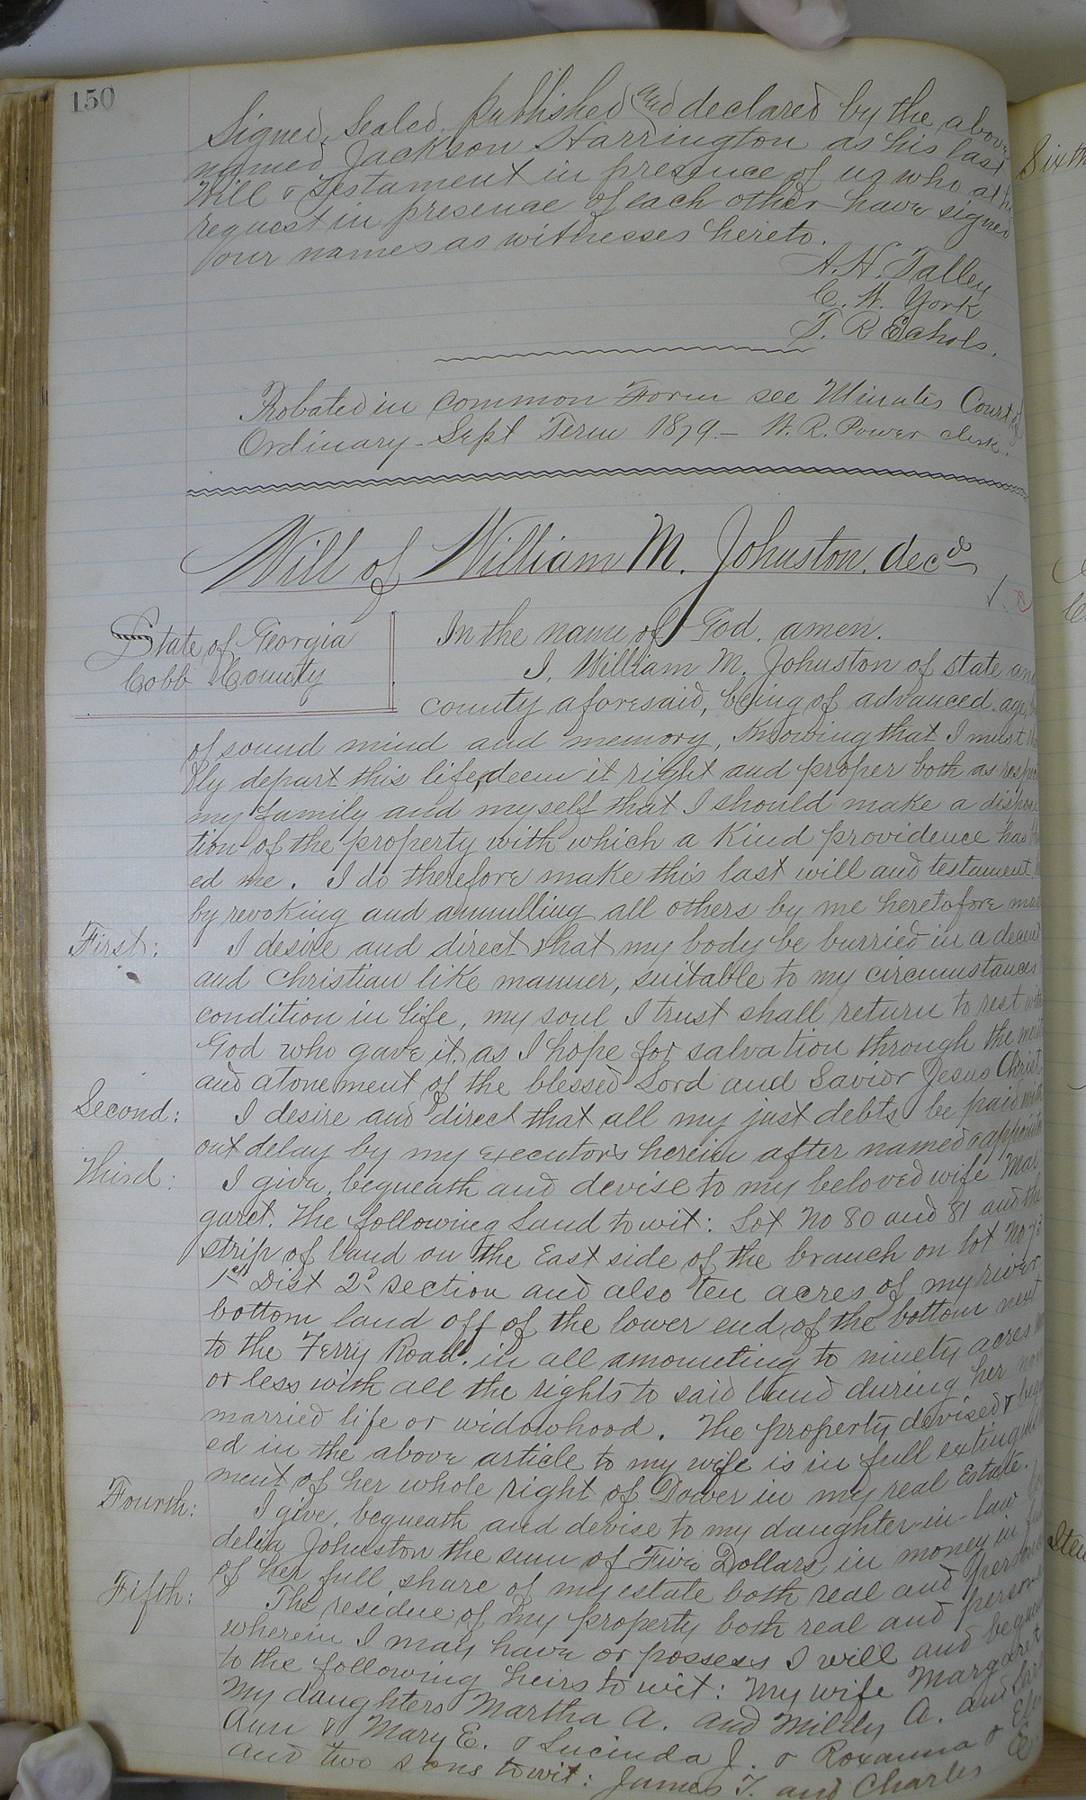 150
Signed, Sealed, published and declared by the above
named Jackson Harrington as his last
Will & Testament in presence of us who at his
request in presence of each other have signed
our names as witnesses hereto.
A. H. Talley
C. W. York
T. R. Echols.
Probated in common Form see Minutes Court of
Ordinary - Sept Term 1879 - W. R. Power clerk.
Will of William M. Johnston, decd
State of Georgia
Cobb County
In the name of God. amen.
I, William M. Johnston of State and
county aforesaid, being of advanced age,
of sound mind and memory, Knowing that I must
bly depart this life, deem it right and proper both as
my family and myself that I should make a dispos
tion of the property with which a Kind providence has
ed me. I do therefore make this last will and testament
by revoking and annulling all others by me heretofore
First:
I desire and direct that my body be burried in a decent
and Christian like manner, suitable to my circumstances
condition in life, my soul I trust shall return to rest with
God who gave it, as I hope for salvation through the
and atonement of the blessed Lord and Savior Jesus Christ
Second:
I desire and direct that all my just debts be paid with
out delay by my executors herein after named &
Third:
I give, bequeath and devise to my beloved wife Mar
garet. The following Land to wit: Lot No 80 and 81 and the
strip of land on the East side of the branch on lot No
1st Dist 2d section and also ten acres of my river
bottom land off of the lower end of the bottom next
to the Ferry Road. in all amounting to ninety acres
or less with all the rights to said land during her
married life or widowhood. The property devised &
ed in the above article to my wife is in full
ment of her whole right of Dower in my real Estate.
Fourth:
I give, bequeath and devise to my daughter-in-law
delia Johnston the sum of Five Dollars in money in
of her full share of my estate both real and
Fifth:
The residue of my property both real and
wherein I may have or possess I will and
to the following heirs to wit: My wife Margaret
My daughters Martha A. and Milly A. and
Ann & Mary E. & Lucinda J. & Roxanna &
and two sons to wit: James T. and Charles
Sixth
Item